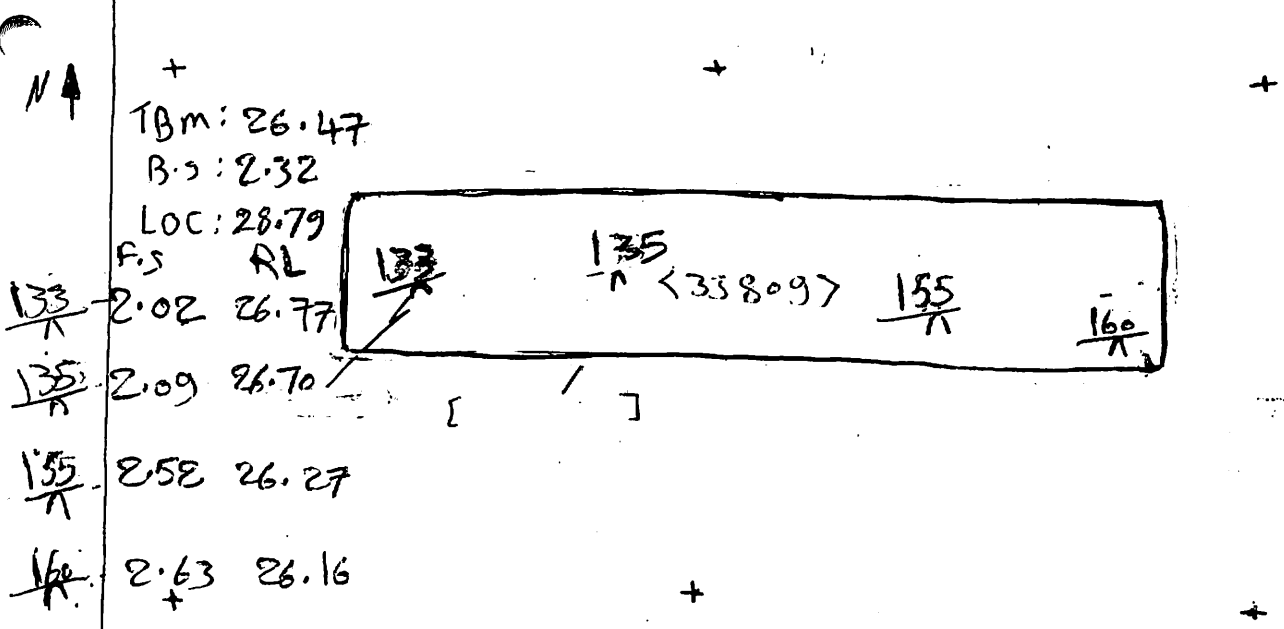 N
TBM: 26.47
B.S: 2.32
LOC: 28.79
F.S RL
133 2.02 26.77
135 2.09 26.70
155 2.52 26.27
160 2.63 26.16
133
135
<33809>
155
160
[ ]